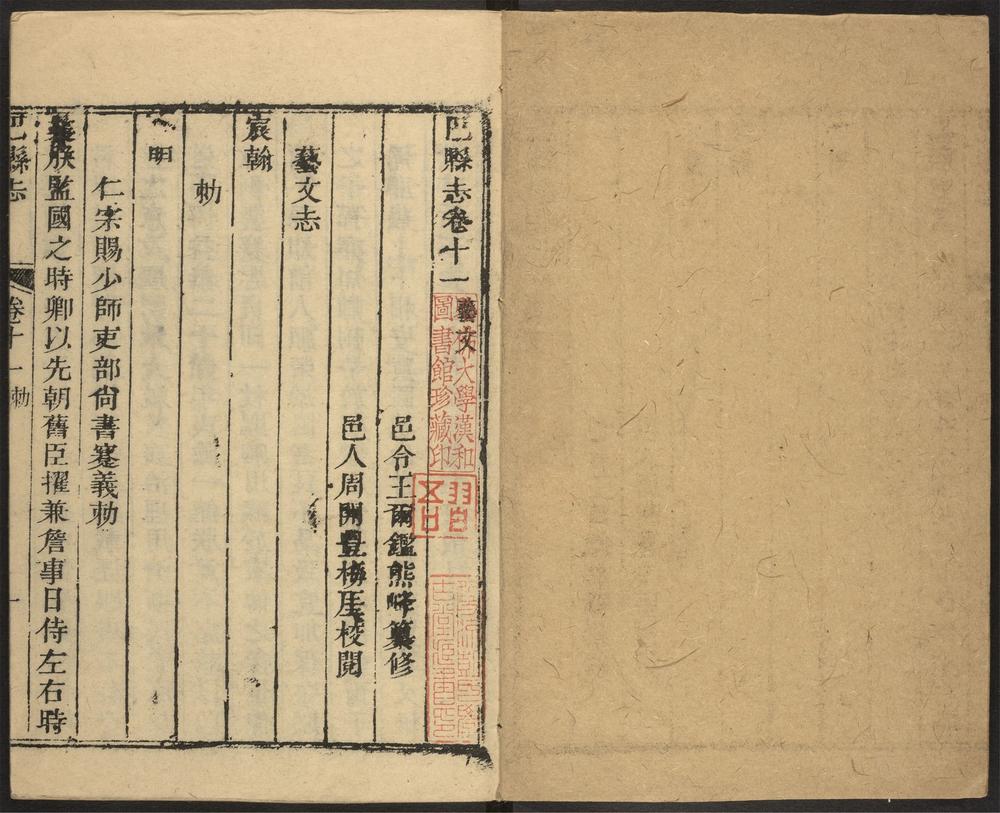 巴縣志卷十一 藝文
邑令王爾鑑熊峰纂修
邑人周開豊梅厓校閱
藝文志
宸翰
勅
明
仁宗賜少師吏部尚書蹇義勅
曩朕監國之時卿以先朝舊臣擢兼詹事日侍左右時
巴縣志
卷十一 勅
一
佛大學漢和
圖書館珍藏印